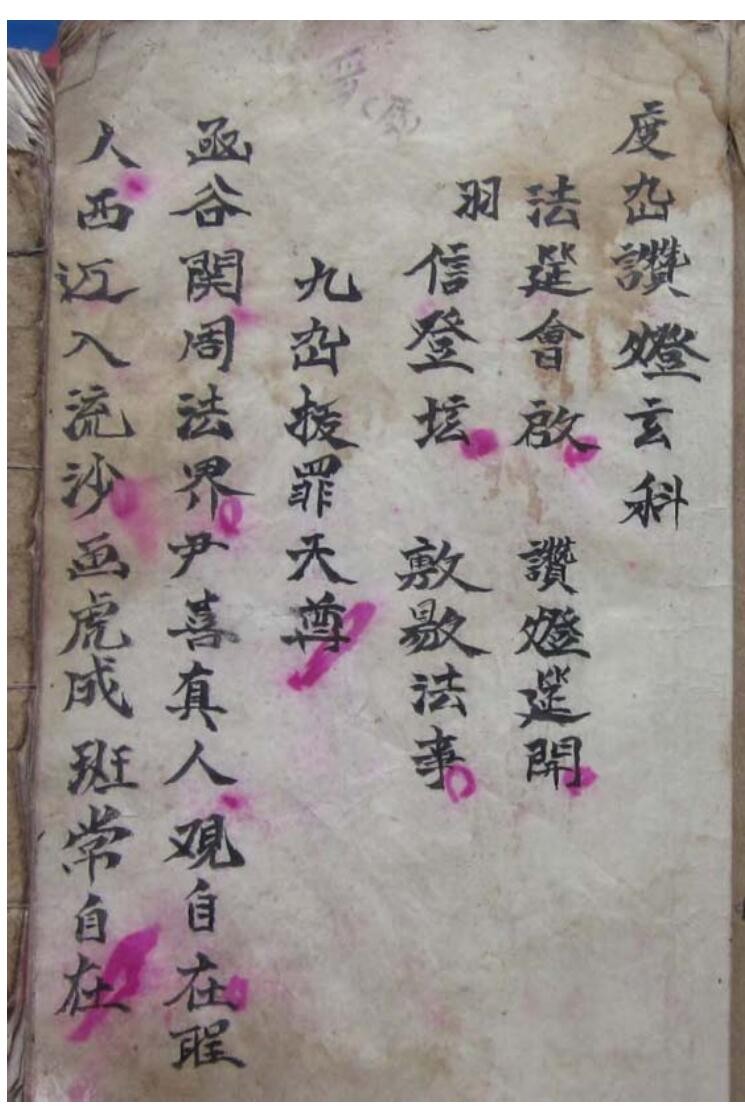 度幽讚燈玄科
法筵會啟 讚燈筵開
羽信登坛 敷敭法事
九幽拔罪天尊
函谷関周法界尹喜真人观自在聖
人西迈入流沙画虎成班常自在